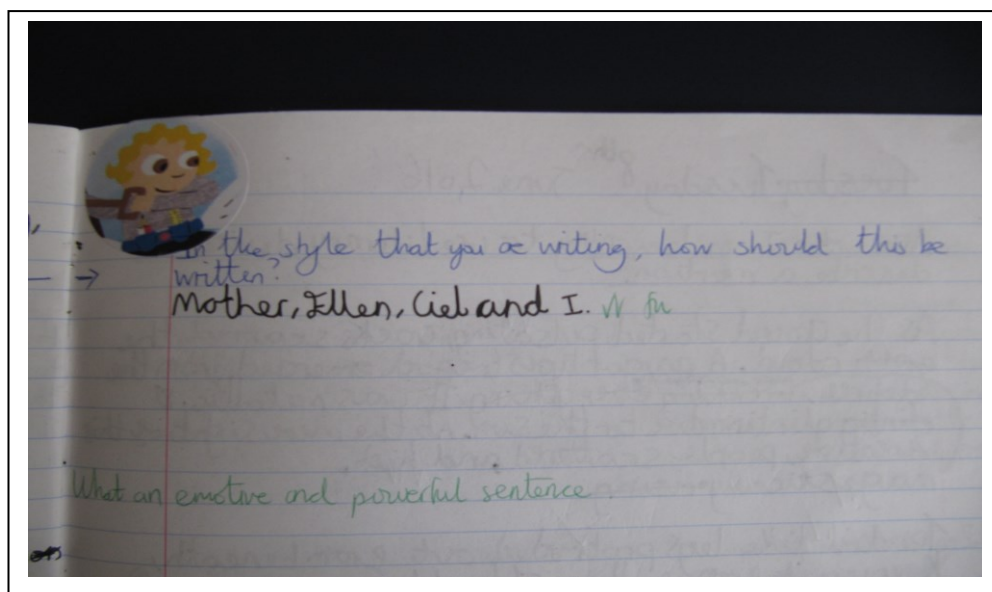 In the style that you are writing, how should this be
written?
Mother, Ellen, Ciel and I.
What an emotive and powerful sentence.